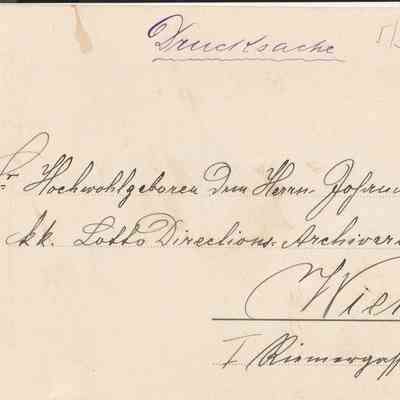 Drucksache
Sr Hochwohlgeboren dem Herrn Johan
kk. Lotto Directions-Archivar
Wie
I Riemergass